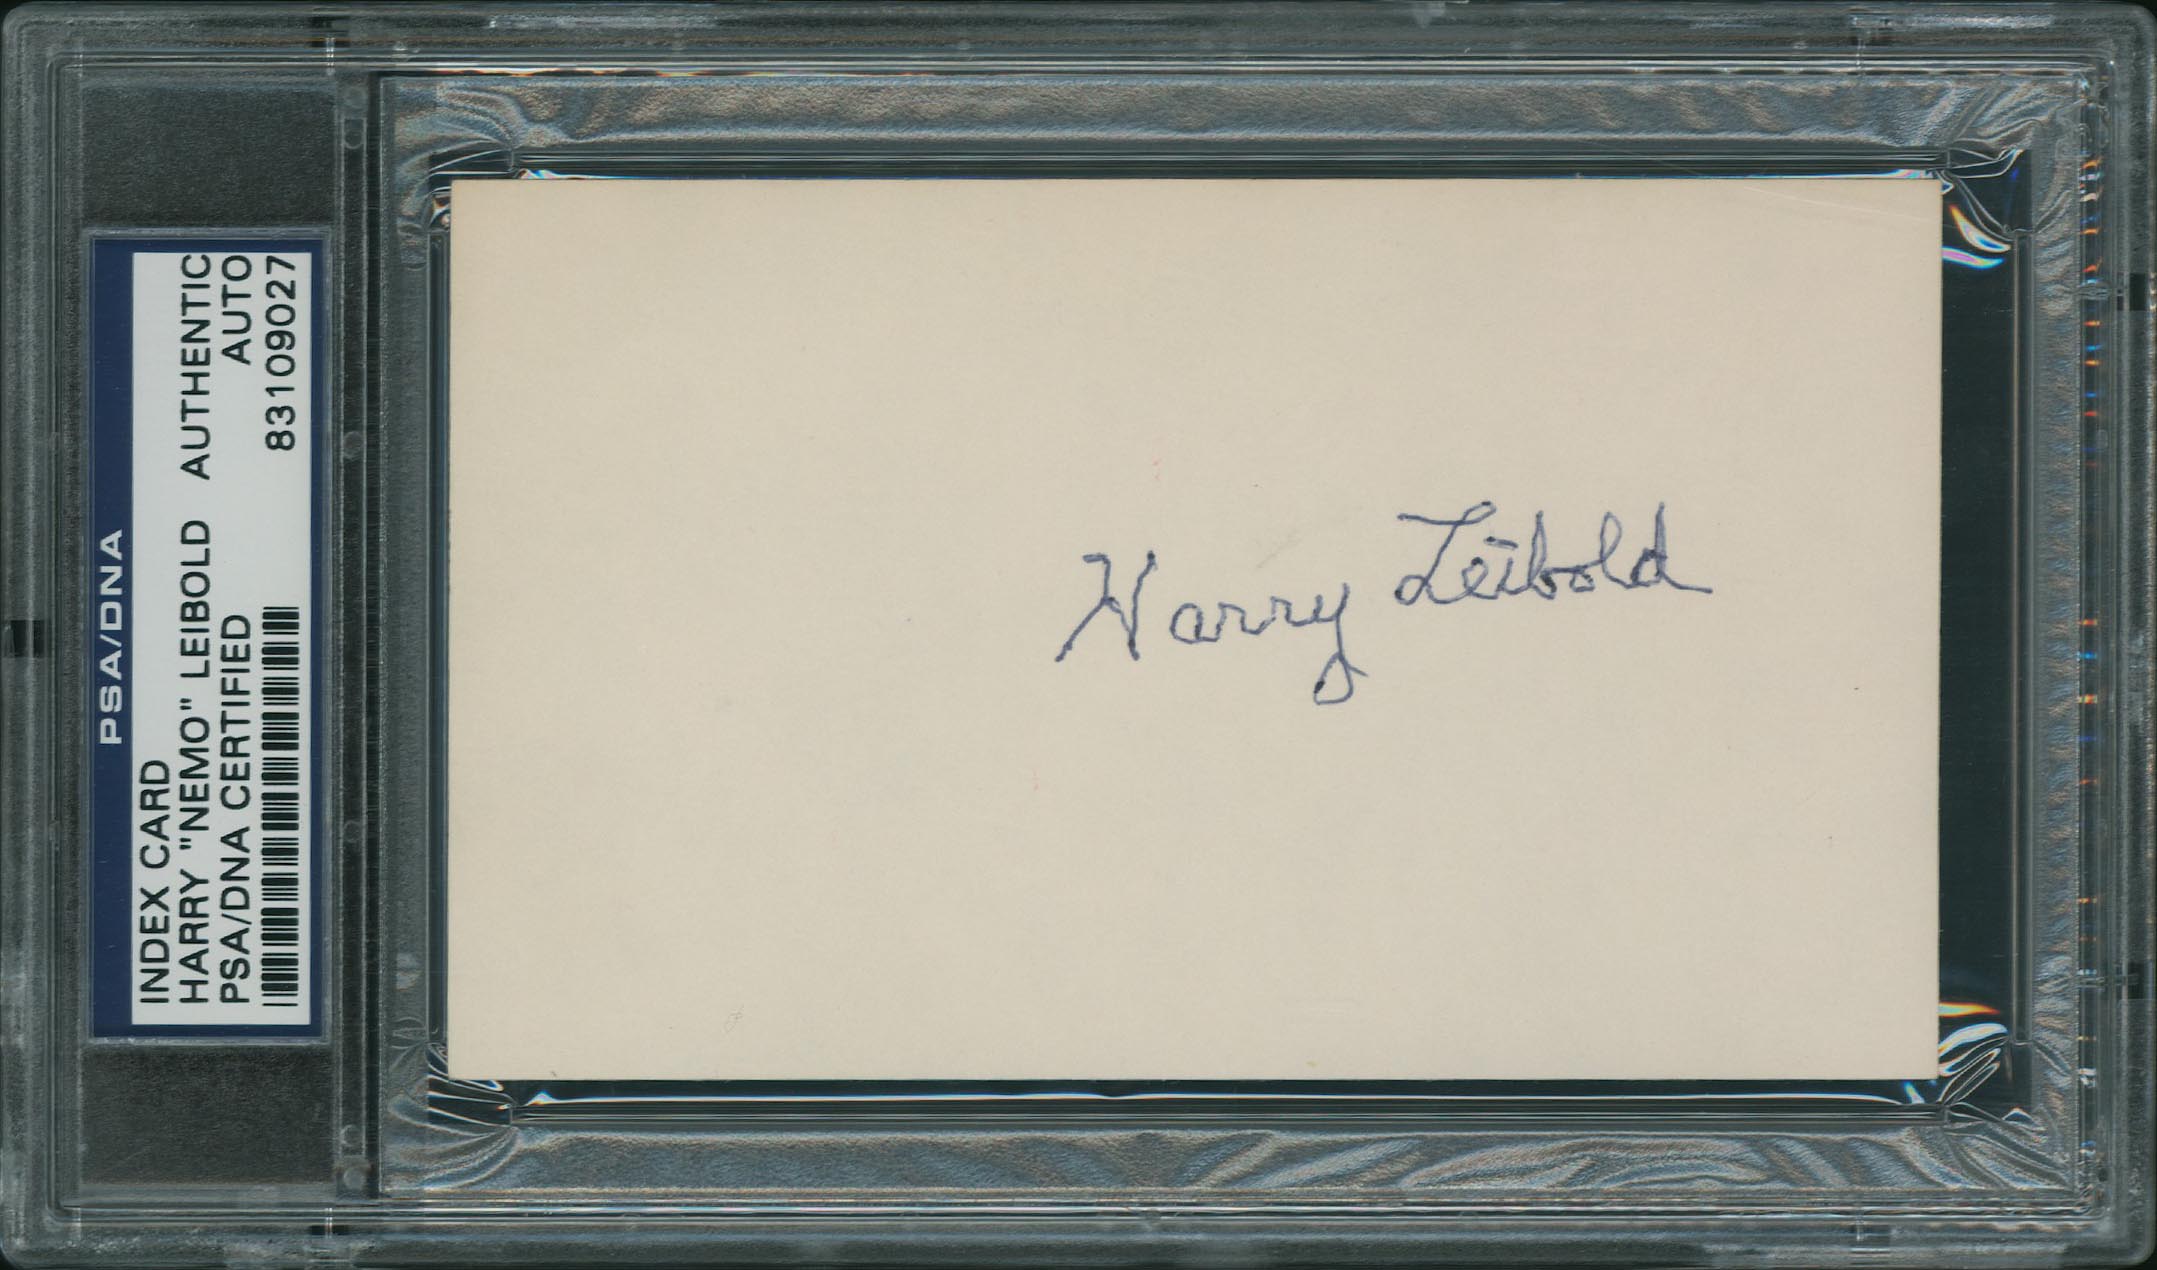 PSA/DNA
INDEX CARD
HARRY "NEMO" LEIBOLD AUTHENTIC
PSA/DNA CERTIFIED AUTO
83109027
Harry Leibold